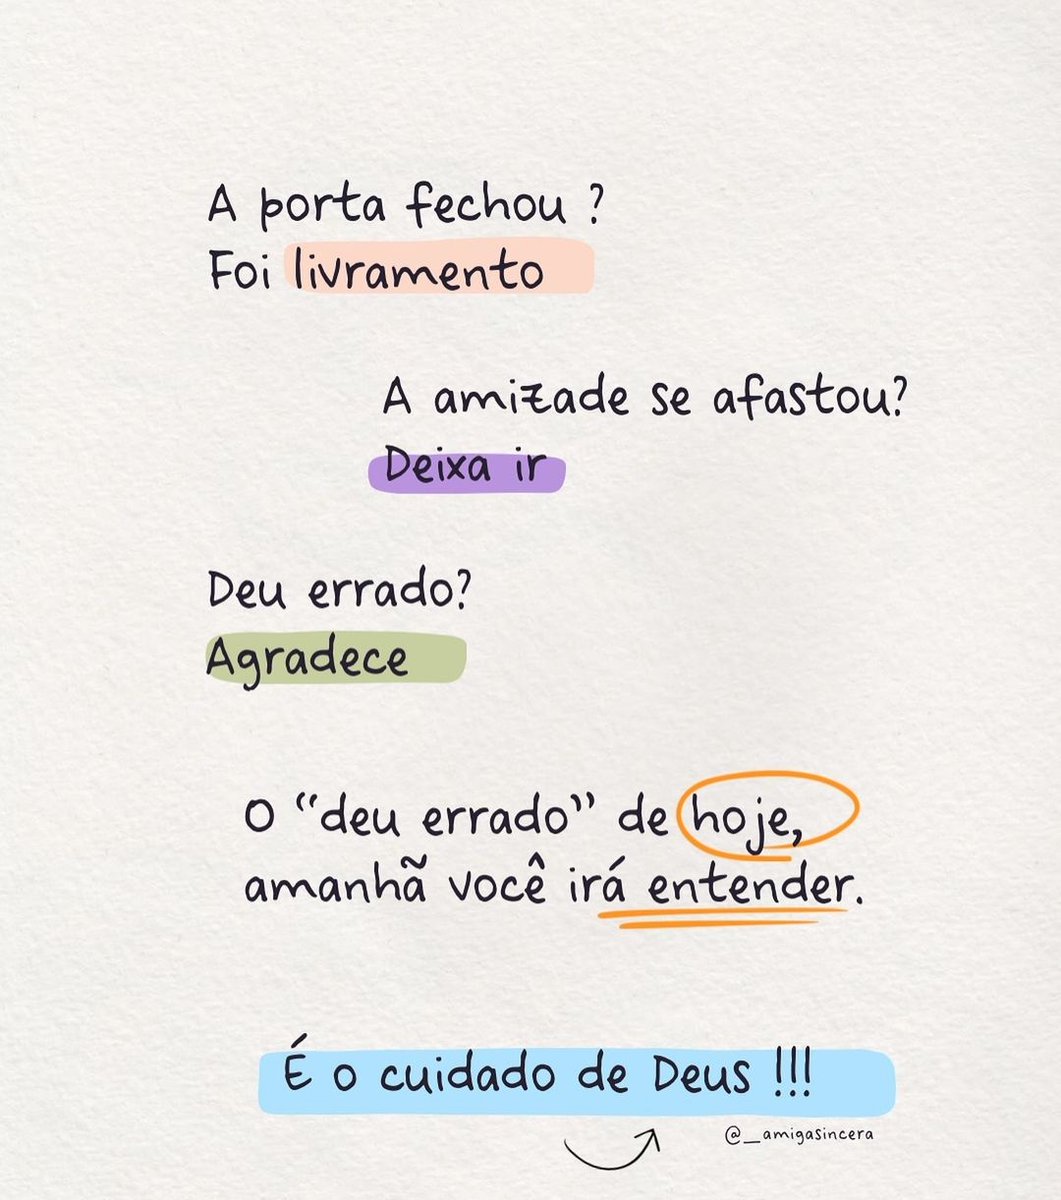 A porta fechou ?
Foi livramento
A amizade se afastou?
Deixa ir
Deu errado?
Agradece
O “deu errado” de hoje,
amanhã você irá entender.
É o cuidado de Deus !!!
@__amigasincera